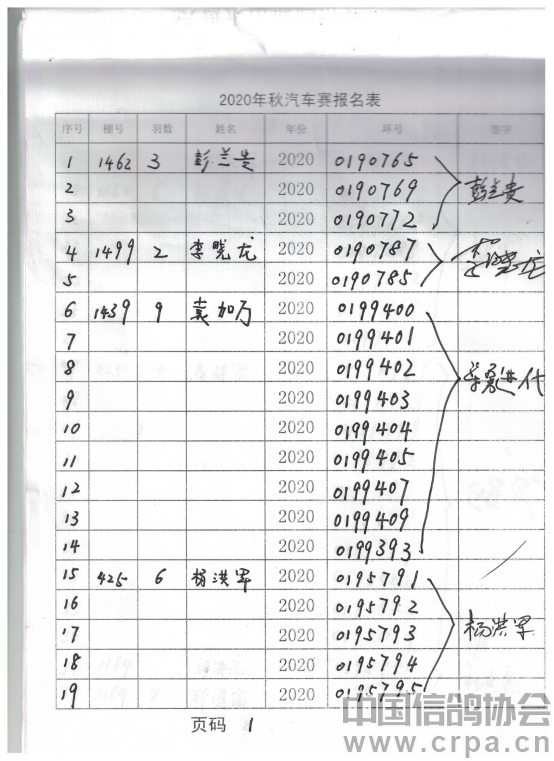 2020年秋汽车赛报名表
序号 棚号 羽数 姓名 年份 环号 签字
1 1462 3 彭兰贵 2020 0190765
2 2020 0190769 彭兰贵
3 2020 0190772
4 1499 2 李晓龙 2020 0190787 李晓龙
5 2020 0190785
6 1439 9 袁加万 2020 0199400
7 2020 0199401
8 2020 0199402 代
9 2020 0199403
10 2020 0199404
11 2020 0199405
12 2020 0199407
13 2020 0199409
14 2020 0199393
15 425 6 杨洪军 2020 0195791
16 2020 0195792
17 2020 0195793 杨洪军
18 2020 0195794
19 2020 0195795
页码 1
中国信鸽协会
www.crpa.cn